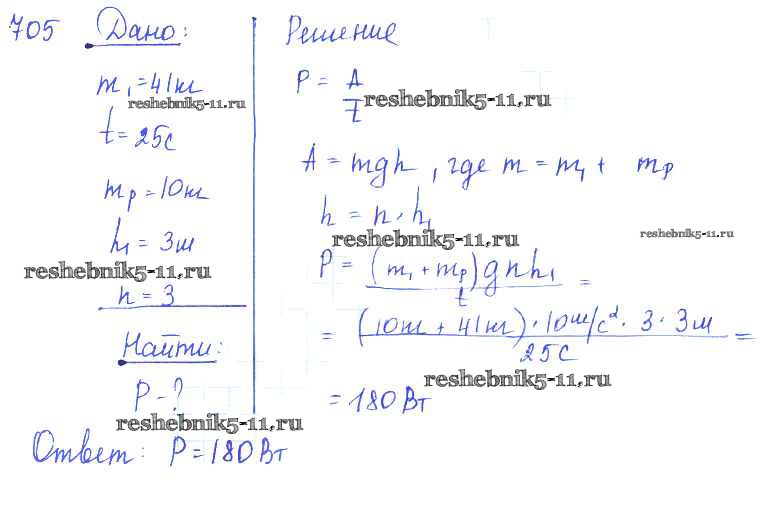 705 Дано:
m₁ = 41кг
reshebnik5-11.ru
t = 25с
mр = 10кг
h₁ = 3м
reshebnik5-11.ru
n = 3
Найти:
P - ?
reshebnik5-11.ru
Решение
P = A/t
reshebnik5-11.ru
A = mgh, где m = m₁ + mр
h = n · h₁
reshebnik5-11.ru
reshebnik5-11.ru
P = (m₁ + mр)gnh₁/t =
= (10кг + 41кг) · 10м/с² · 3 · 3м/25с =
reshebnik5-11.ru
= 180Вт
Ответ: P = 180Вт